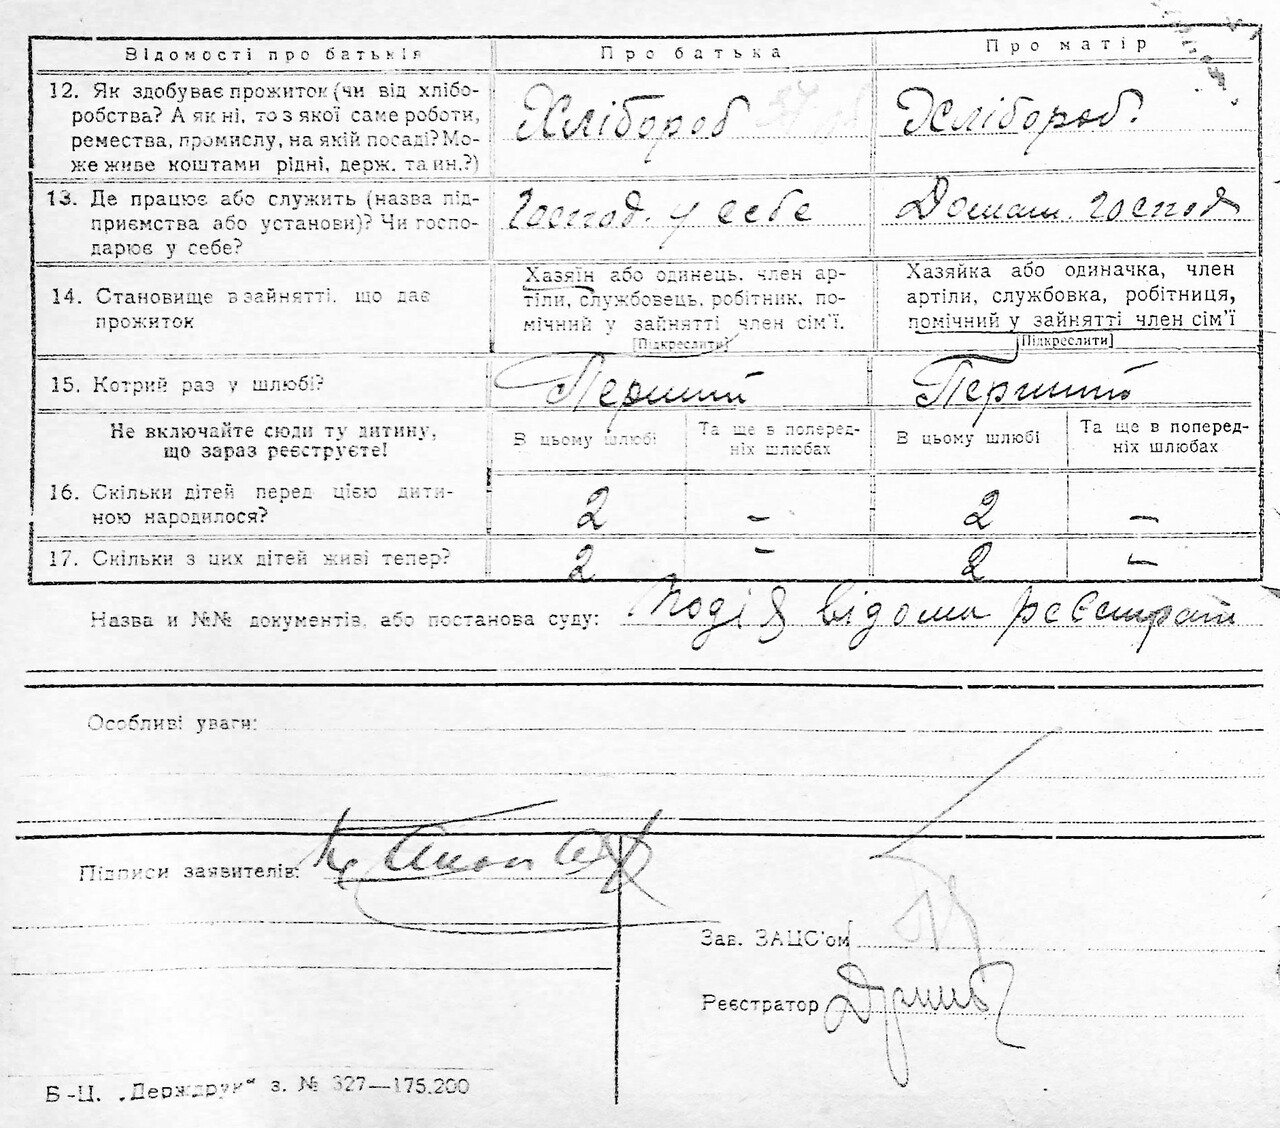 Відомості про батьків Про батька Про матір
12. Як здобуває прожиток (чи від хлібо-
робства? А як ні, то з якої саме роботи,
ремества, промислу, на якій посаді? Мо-
же живе коштами рідні, держ. та ин.?)
Хлібороб Хлібороб.
13. Де працює або служить (назва під-
приємства або установи)? Чи госпо-
дарює у себе?
Господ. у себе Домаш. господ
14. Становище в зайнятті, що дає
прожиток
Хазяїн або одинець, член ар-
тіли, службовець, робітник, по-
мічний у зайнятті член сім'ї.
[Підкреслити]
Хазяйка або одиначка, член
артіли, службовка, робітниця,
помічний у зайнятті член сім'ї
[Підкреслити]
15. Котрий раз у шлюбі? Перший Перший
Не включайте сюди ту дитину,
що зараз реєструєте!
В цьому шлюбі
Та ще в поперед-
ніх шлюбах
В цьому шлюбі
Та ще в поперед-
ніх шлюбах
16. Скільки дітей перед цією дити-
ною народилося?
2 – 2 –
17. Скільки з цих дітей живі тепер? 2 - 2 –
Назва и №№ документів, або постанова суду: Подія відома реєстрат
Особливі уваги:
Підписи заявителів:
Зав. ЗАЦС'ом
Реєстратор
Б-Ц. „Держдрук“ з. № 327—175.200